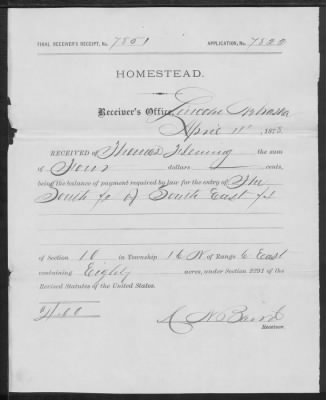 FINAL RECEIVER'S RECEIPT, No. 7851 APPLICATION, No. 7822
HOMESTEAD.
Receiver's Office, Lincoln Nebraska
April 1st, 1875.
RECEIVED of Thomas Fleming the sum
of Four dollars cents,
being the balance of payment required by law for the entry of The
South ½ of South East ¼
of Section 10 in Township 16 N of Range 6 East
containing Eighty acres, under Section 2291 of the
Revised Statutes of the United States.
$4.00
Receiver.